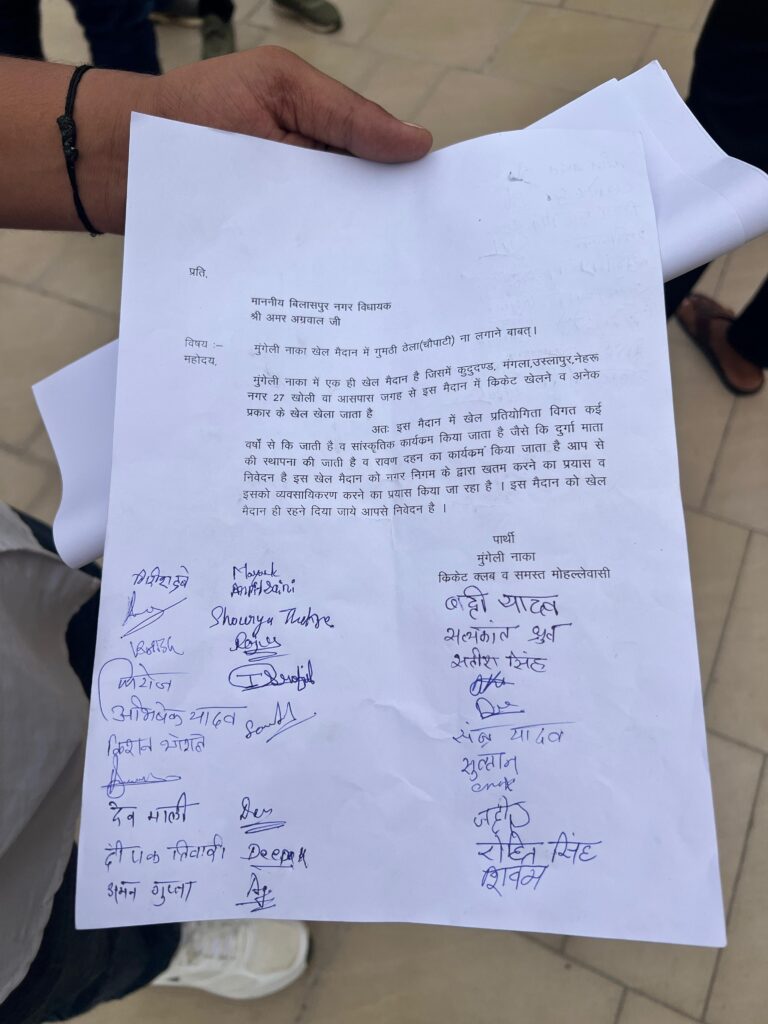 प्रति,
माननीय बिलासपुर नगर विधायक
श्री अमर अग्रवाल जी
विषय :– मुंगेली नाका खेल मैदान में गुमठी ठेला(चौपाटी) ना लगाने बाबत्।
महोदय,
मुंगेली नाका में एक ही खेल मैदान है जिसमें कुदुदण्ड, मंगला,उस्लापुर,नेहरू
नगर 27 खोली वा आसपास जगह से इस मैदान में क्रिकेट खेलने व अनेक
प्रकार के खेल खेला जाता है
अतः इस मैदान में खेल प्रतियोगिता विगत कई
वर्षो से कि जाती है व सांस्कृतिक कार्यक्रम किया जाता है जैसे कि दुर्गा माता
की स्थापना की जाती है व रावण दहन का कार्यक्रम किया जाता है आप से
निवेदन है इस खेल मैदान को नगर निगम के द्वारा खतम करने का प्रयास व
इसको व्यवसायिकरण करने का प्रयास किया जा रहा है । इस मैदान को खेल
मैदान ही रहने दिया जाये आपसे निवेदन है ।
प्रार्थी
मुंगेली नाका
क्रिकेट क्लब व समस्त मोहल्लेवासी
Mayank
Shourya
अभिषेक यादव
किशन
देव माली Dev
दीपक तिवारी Deepak
अमन गुप्ता
बद्री यादव
सत्यकांत ध्रुव
सतीश सिंह
यादव
रोहित सिंह
शिवम